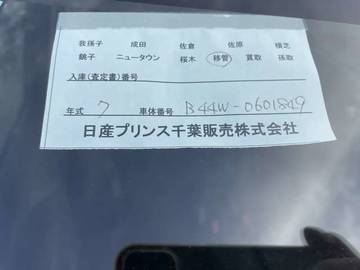 我孫子 成田 佐倉 佐原 横芝
銚子 ニュータウン 桜木 移管 買取 孫取
入庫(査定書)番号
年式 7 車体番号 B44W-0601849
日産プリンス千葉販売株式会社